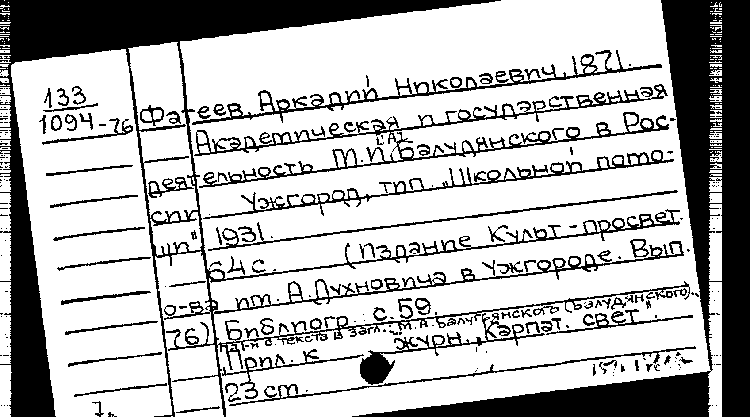 133
1094-76
Фатеев, Аркадий Николаевич, 1871.
Академическая и государственная
деятельность М.И. Балудянского в Рос-
сии. Ужгород, тип. "Школьной помо-
щи", 1931.
64 с. (Издание Культ.-просвет.
о-ва им. А.Духновича в Ужгороде. Вып.
76) Библиогр. с.59.
"Прил. к журн. "Карпат. свет".
23 см.